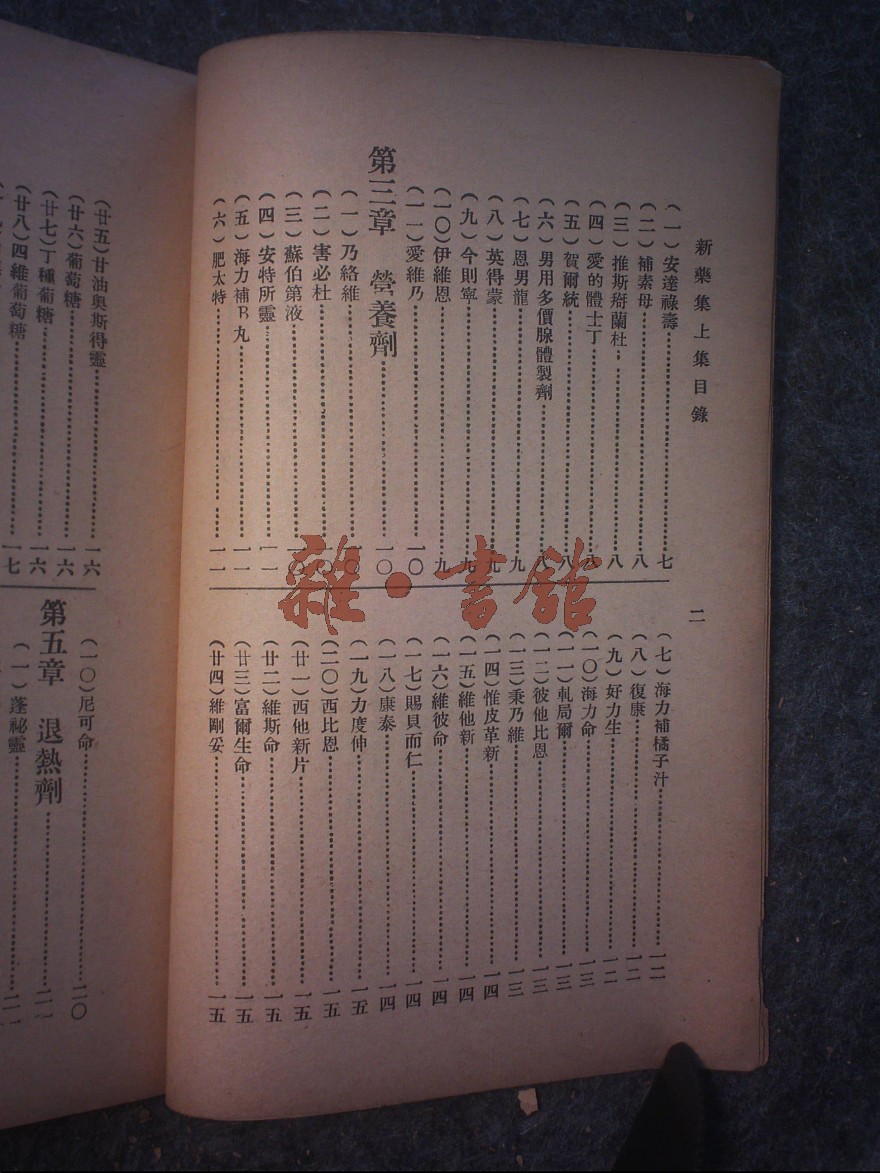 新藥集上集目錄
二
(一)安達祿壽 七
(二)補素母 八
(三)推斯掰蘭杜 八
(四)愛的體士丁 八
(五)賀爾統 八
(六)男用多價腺體製劑 八
(七)恩男龍 九
(八)英得蒙 九
(九)今則寧 九
(一〇)伊維恩 九
(一一)愛維乃 一〇
第三章 營養劑 一〇
(一)乃絡維 一〇
(二)害必杜 一〇
(三)蘇伯第液 一〇
(四)安特所靈 一一
(五)海力補B丸 一一
(六)肥太特 一一
(七)海力補橘子汁 一二
(八)復康 一二
(九)好力生 一二
(一〇)海力命 一三
(一一)軋局爾 一三
(一二)彼他比恩 一三
(一三)秉乃維 一三
(一四)惟皮革新 一四
(一五)維他新 一四
(一六)維彼命 一四
(一七)賜貝而仁 一四
(一八)康泰 一四
(一九)力度伸 一五
(二〇)西比恩 一五
(廿一)西他新片 一五
(廿二)維斯命 一五
(廿三)富爾生命 一五
(廿四)維剛妥 一五
(廿五)甘油奧斯得靈 一六
(廿六)葡萄糖 一六
(廿七)丁種葡糖 一六
(廿八)四維葡萄糖 一七
(一〇)尼可命 二〇
第五章 退熱劑
(一)蓬祕靈
雜·書館